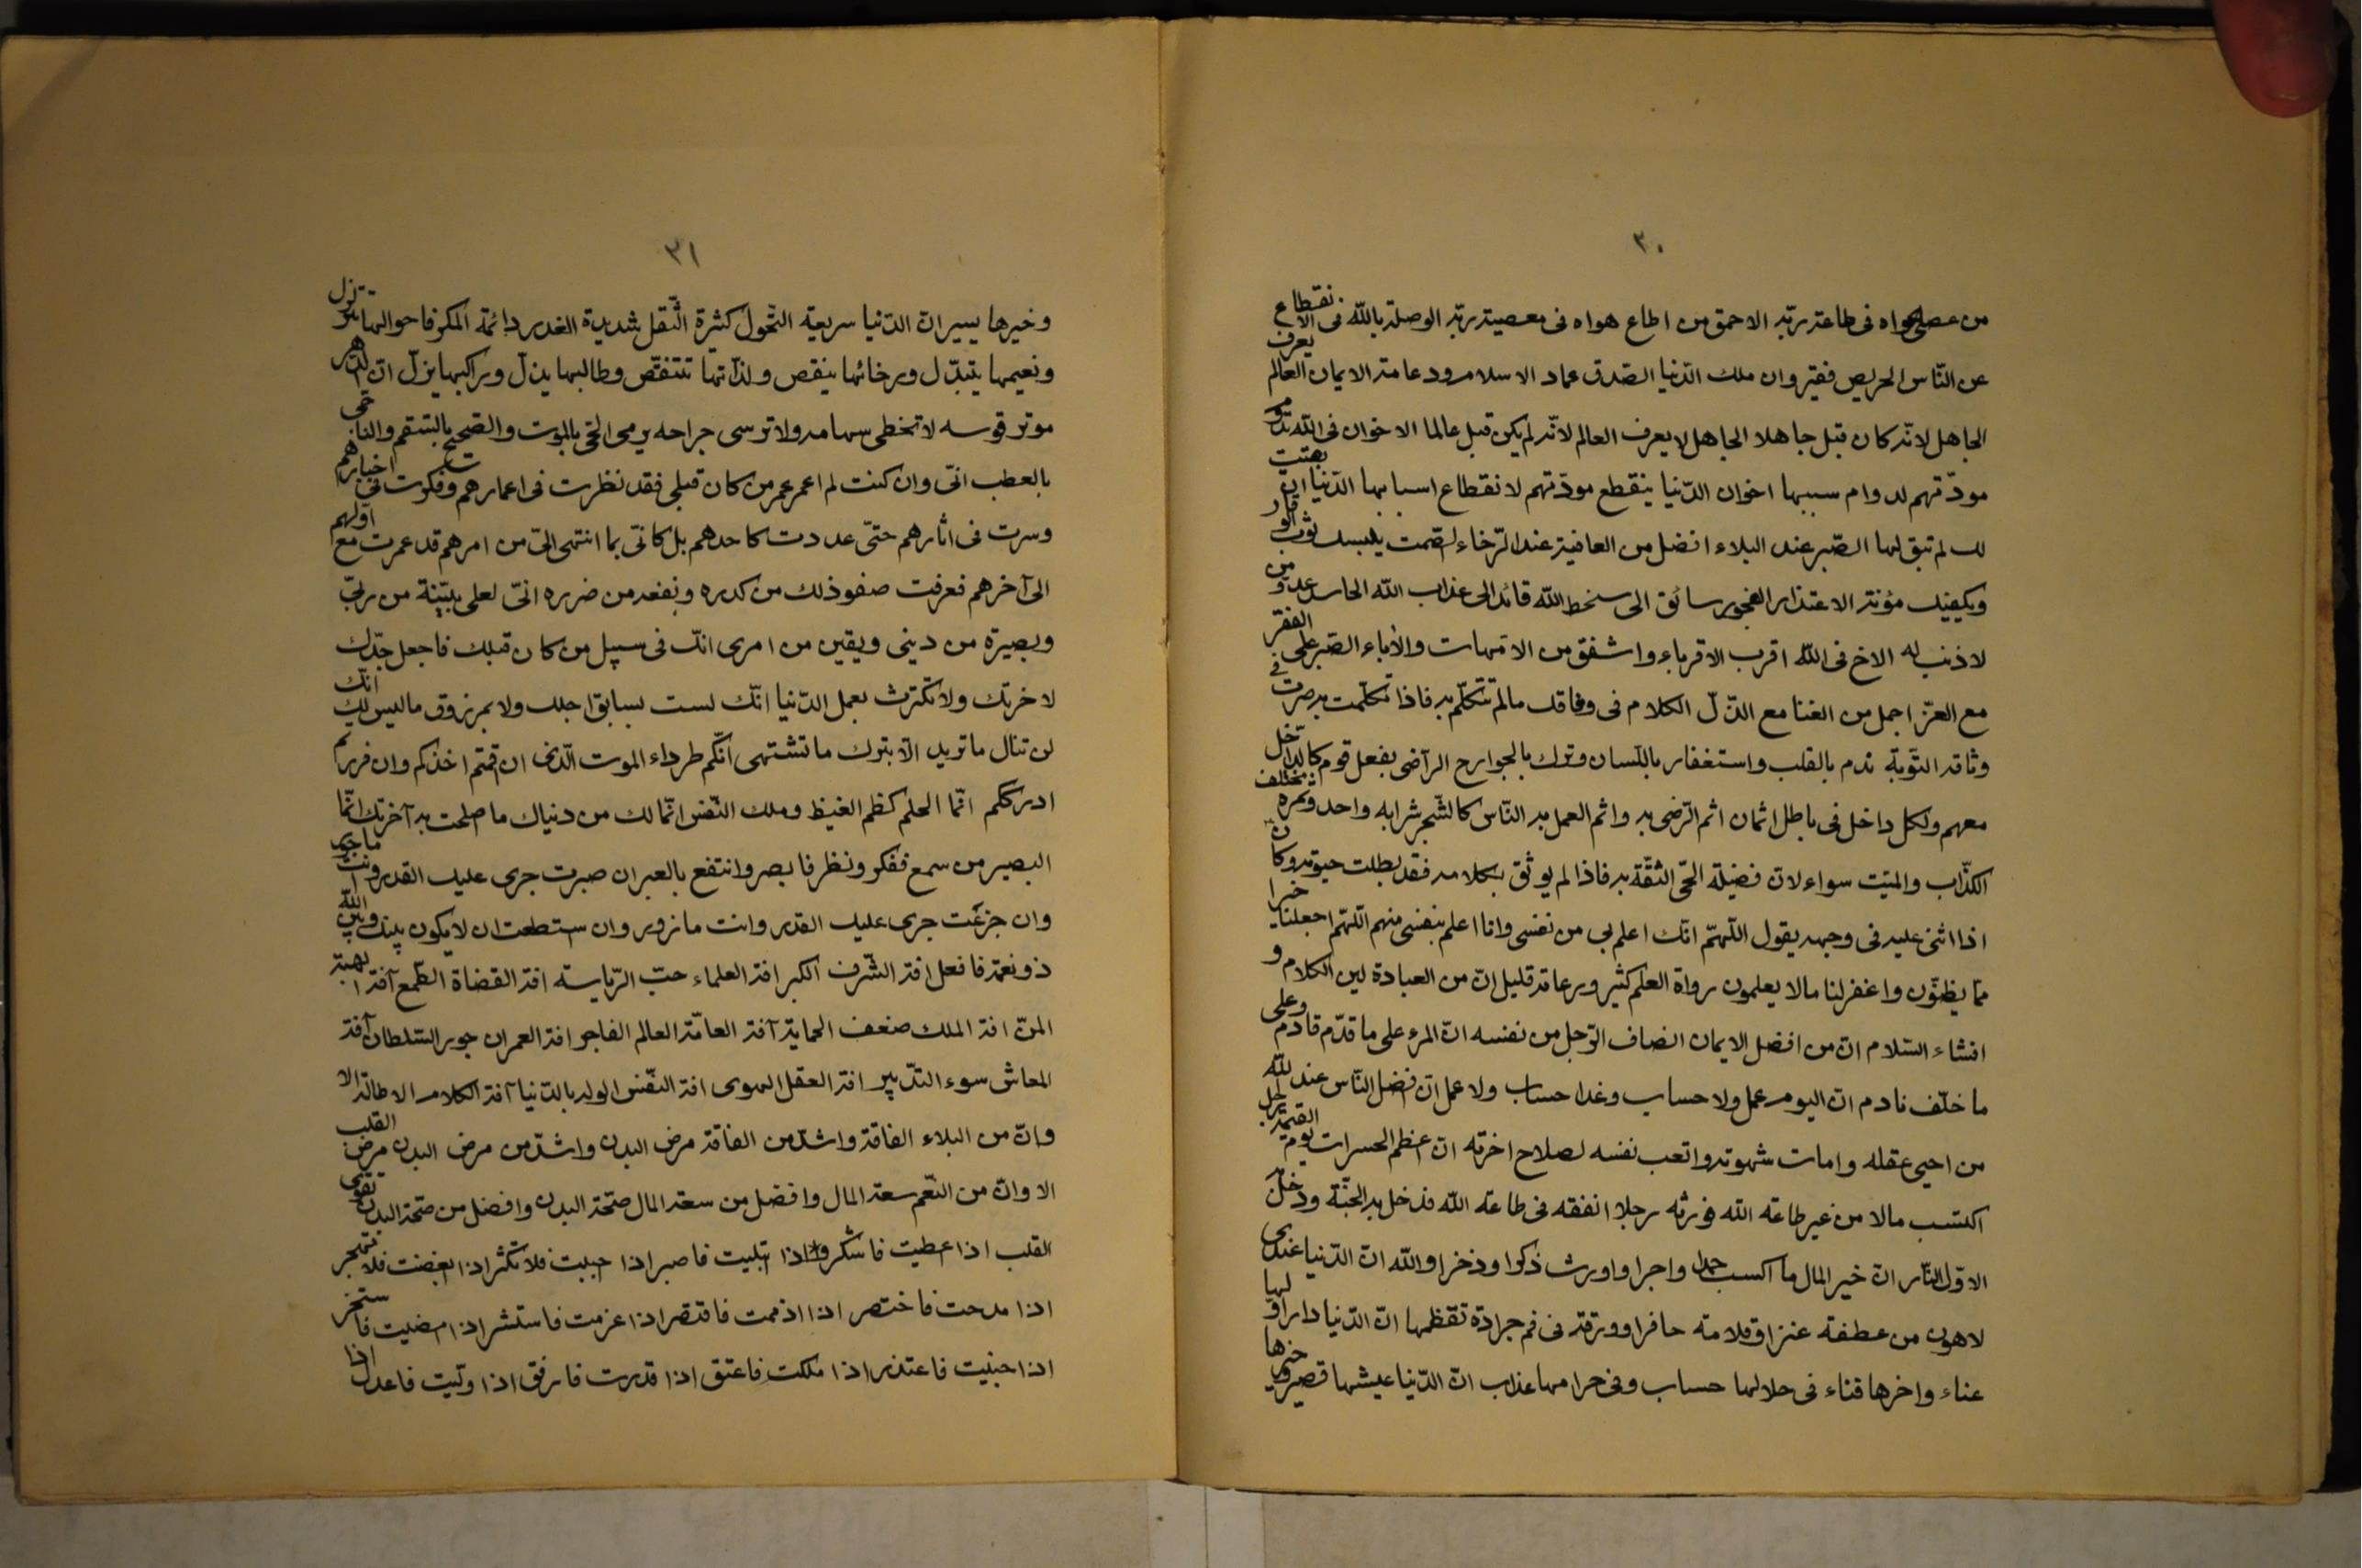 ٣٠
من عصى هواه فى طاعة ربّه الاحمق من اطاع هواه فى معصية ربّه الوصلة بالله فى الانقطاع
عن النّاس الحريص فقير وان ملك الدّنيا الصّدق عماد الاسلام ودعامة الايمان العالم يعرف
الجاهل لانّه كان قبل جاهلا الجاهل لا يعرف العالم لانّه لم يكن قبل عالما الاخوان فى الله تدوم
مودّتهم لدوام سببها اخوان الدّنيا ينقطع مودّتهم لانقطاع اسبابها الدّنيا ان بقيت
لك لم تبق لها الصّبر عند البلاء افضل من العافية عند الرّخاء الصّمت يلبسك ثوب الوقار
ويكفيك مؤنة الاعتذار الفجور سائق الى سخط الله قائد الى عذاب الله الحاسد عدو من
لا ذنب له الاخ فى الله اقرب الاقرباء واشفق من الامّهات والأباء الصّبر على الفقر
مع العزّ اجمل من الغنا مع الذّل الكلام فى وثاقك مالم تتكلّم به فاذا تكلّمت به صرت فى
وثاقه التّوبة ندم بالقلب واستغفار باللّسان وترك بالجوارح الرّاضى بفعل قوم كالداخل
معهم ولكل داخل فى باطل اثمان اثم الرّضى به واثم العمل به النّاس كالشّجر شرابه واحد وثمره مختلف
الكذّاب والميّت سواء لانّ فضيلة الحىّ الثّقة به فاذا لم يوثق بكلامه فقد بطلت حيوته وكان
اذا اثنى عليه فى وجهه يقول اللّهمّ انّك اعلم بى من نفسى وانا اعلم بنفسى منهم اللّهمّ اجعلنا خيرا
ممّا يظنّون واغفر لنا مالا يعلمون رواة العلم كثير ورعاته قليل انّ من العبادة لين الكلام و
افشاء السّلام انّ من افضل الايمان انصاف الرّجل من نفسه انّ المرء على ما قدّم قادم وعلى
ما خلّف نادم انّ اليوم عمل ولا حساب وغدا حساب ولا عمل انّ افضل النّاس عند الله
من احيى عقله وامات شهوته واتعب نفسه لصلاح اخرته انّ اعظم الحسرات يوم القيمة رجل
اكتسب مالا من غير طاعة الله فورثه رجلا انفقه فى طاعة الله فدخل به الجنّة ودخل
الاوّل النّار انّ خير المال ما اكسب حمدا واجرا واورث ذكرا وذخرا والله انّ الدّنيا عندى
لاهون من عطفة عنز او قلامة حافر او ورقة فى فم جرادة تقظمها انّ الدّنيا دار اوّلها
عناء واخرها فناء فى حلالها حساب وفى حرامها عذاب انّ الدّنيا عيشها قصير وخيرها
٣١
وخيرها يسير انّ الدّنيا سريعة التّحول كثيرة التّنقل شديدة الغدر دائمة المكر فاحوالها تزلزل
ونعيمها يتبدّل ورخائها ينقص ولذّاتها تتنقّص وطالبها يذلّ وراكبها يزلّ انّ الدّهر
موتر قوسه لا تخطى سهامه ولا توسى جراحه يرمى الحىّ بالموت والصّحيح بالسّقم والناجى
بالعطب انّى وان كنت لم اعمر عمر من كان قبلى فقد نظرت فى اعمارهم وفكرت فى اخبارهم
وسرت فى اثارهم حتّى عددت كاحدهم بل كانّى بما انتهى الىّ من امرهم قد عمرت مع اوّلهم
الى آخرهم فعرفت صفو ذلك من كدره ونفعه من ضرره انّى لعلى بيّنة من ربّى
وبصيرة من دينى ويقين من امرى انّك فى سبيل من كان قبلك فاجعل جدّك
لاخرتك ولا تكترث بعمل الدّنيا انّك لست بسابق اجلك ولا بمرزوق ماليس لك انّك
لن تنال ما تريد الّا بترك ما تشتهى انّكم طرداء الموت الّذى ان اقمتم اخذكم وان فررتم
ادرككم انّما الحلم كظم الغيظ وملك النّفس انّما لك من دنياك ما اصلحت به آخرتك انّما
البصير من سمع ففكر ونظر فابصر وانتفع بالعبر ان صبرت جرى عليك القدر وانت ماجور
وان جزعت جرى عليك القدر وانت مازور وان ستطعت ان لا يكون بينك وبين الله
ذو نعمة فافعل افة الشّرف الكبر افة العلماء حبّ الرّياسة افة القضاة الطّمع آفة الهبة
المنّ افة الملك ضعف الحماية آفة العامّة العالم الفاجر افة العمران جور السّلطان آفة
المعاش سوء التدّبير افة العقل الهوى افة النّفس الوله بالدّنيا آفة الكلام الاطالة الا
وانّ من البلاء الفاقة واشدّ من الفاقة مرض البدن واشدّ من مرض البدن مرض القلب
الا وانّ من النّعم سعة المال وافضل من سعة المال صحّة البدن وافضل من صحّة البدن تقوى
القلب اذا عطيت فاشكر واذا ابتليت فاصبر اذا حببت فلا تكثر اذا ابغضت فلا تهجر
اذا مدحت فاختصر اذا اذممت فاقتصر اذا عزمت فاستشر اذا امضيت فاستخر
اذا جنيت فاعتذر اذا ملكت فاعتق اذا قدرت فارفق اذا ولّيت فاعدل اذا